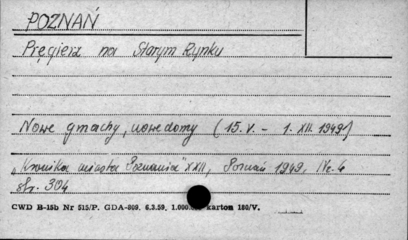 POZNAŃ
Pręgierz na Starym Rynku
Nowe gmachy, nowe domy (15.V. - 1. XII. 1949)
"Kronika miasta Poznania" XXII, Poznań 1949, Nr. 4
str. 304
CWD B-15b Nr 515/P. GDA-809. 6.3.59. 1.000.000 karton 180/V.